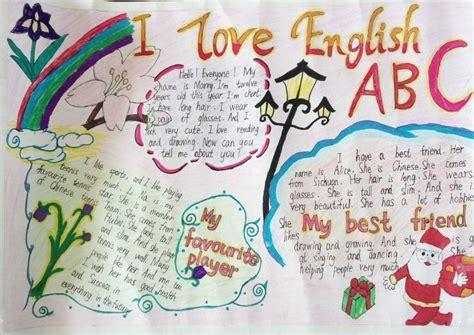 I Love English
ABC
Hello! Everyone! My
name is Morry. I'm twelve
years old this year. I'm short.
I have long hair. I wear
a pair of glasses. And I
look very cute. I love reading
and drawing. Now can you
tell me about you!
I like sports, and I like playing
tennis very much. Li Na is my
favourite tennis star. She is a member
of Chinese tennis
team. She comes from
Hubei. She has
and She
tennis very well. Many
people like her. And
with her has good health
and Success in
everything in the future.
My
favourite
player
I have a best friend. Her
name is Alice. She is Chinese. She comes
from Sichuan. Her hair is long. She wears
glasses. She is tall and slim. And she is
very beautiful. She has a lot of hobbies.
She likes
My best friend
drawing and growing. And She
is good at singing and dancing. She
likes helping people very much.